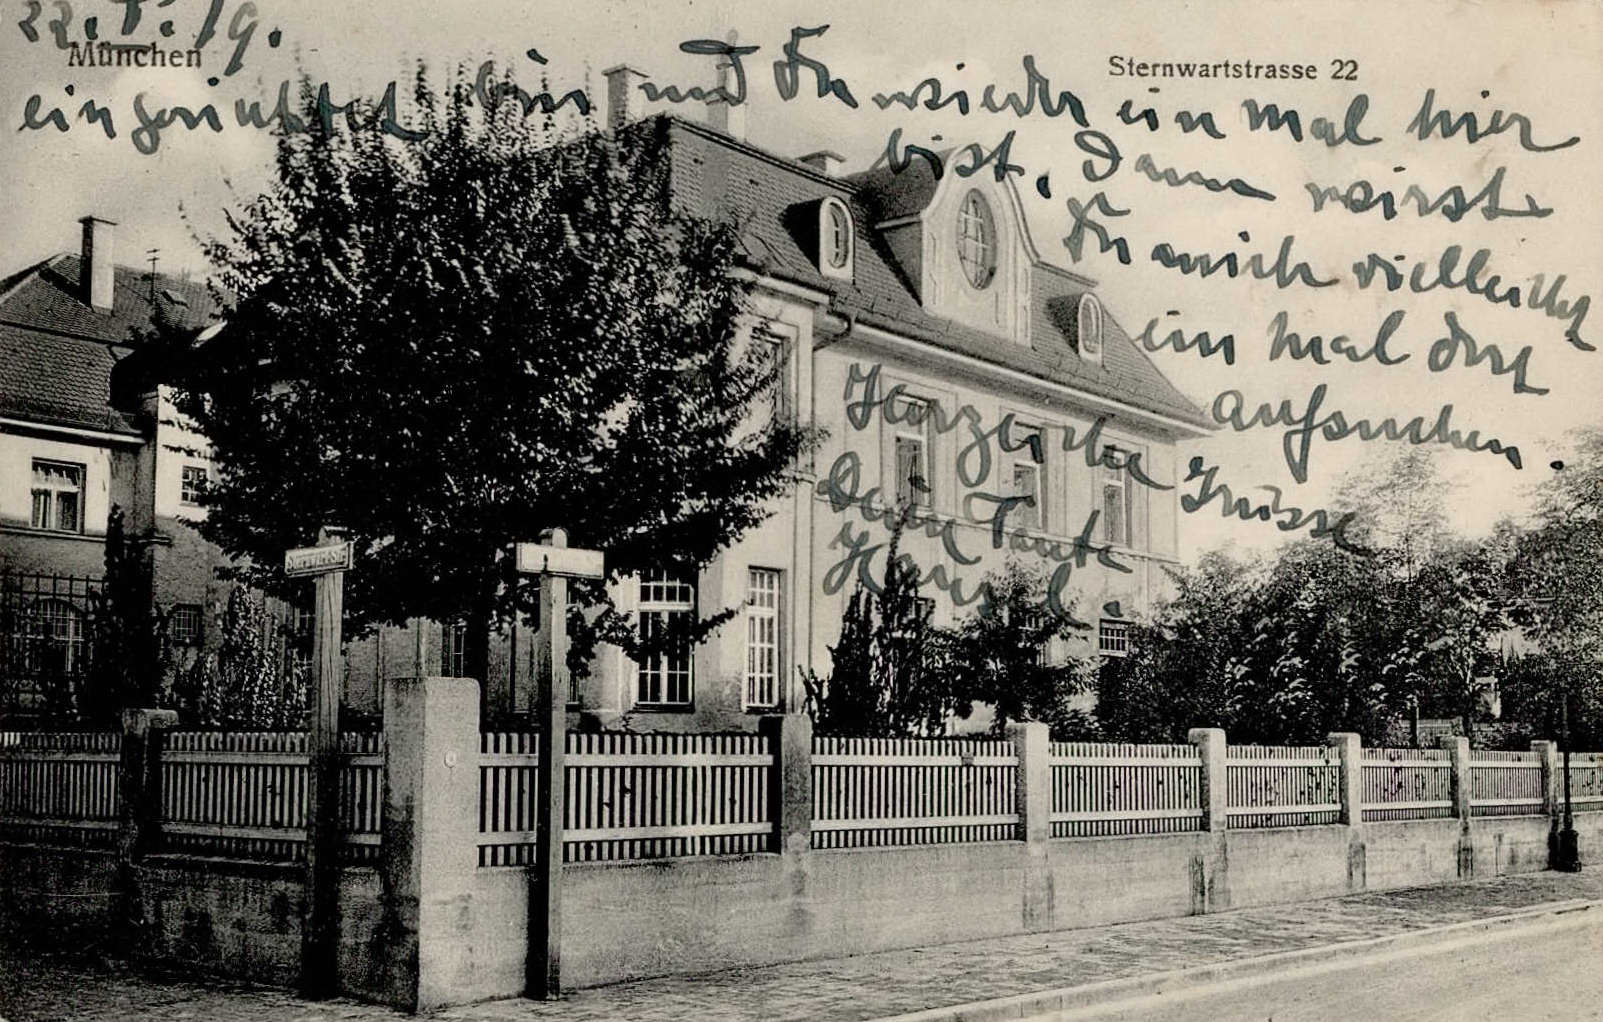 22. V. 19.
München
Sternwartstrasse 22
eingerichtet bin und Du wieder ein mal hier
bist. Dann wirst
Du mich vielleicht
ein mal dort
aufsuchen.
Herzliche Grüsse
Deine Tante
Hansl.